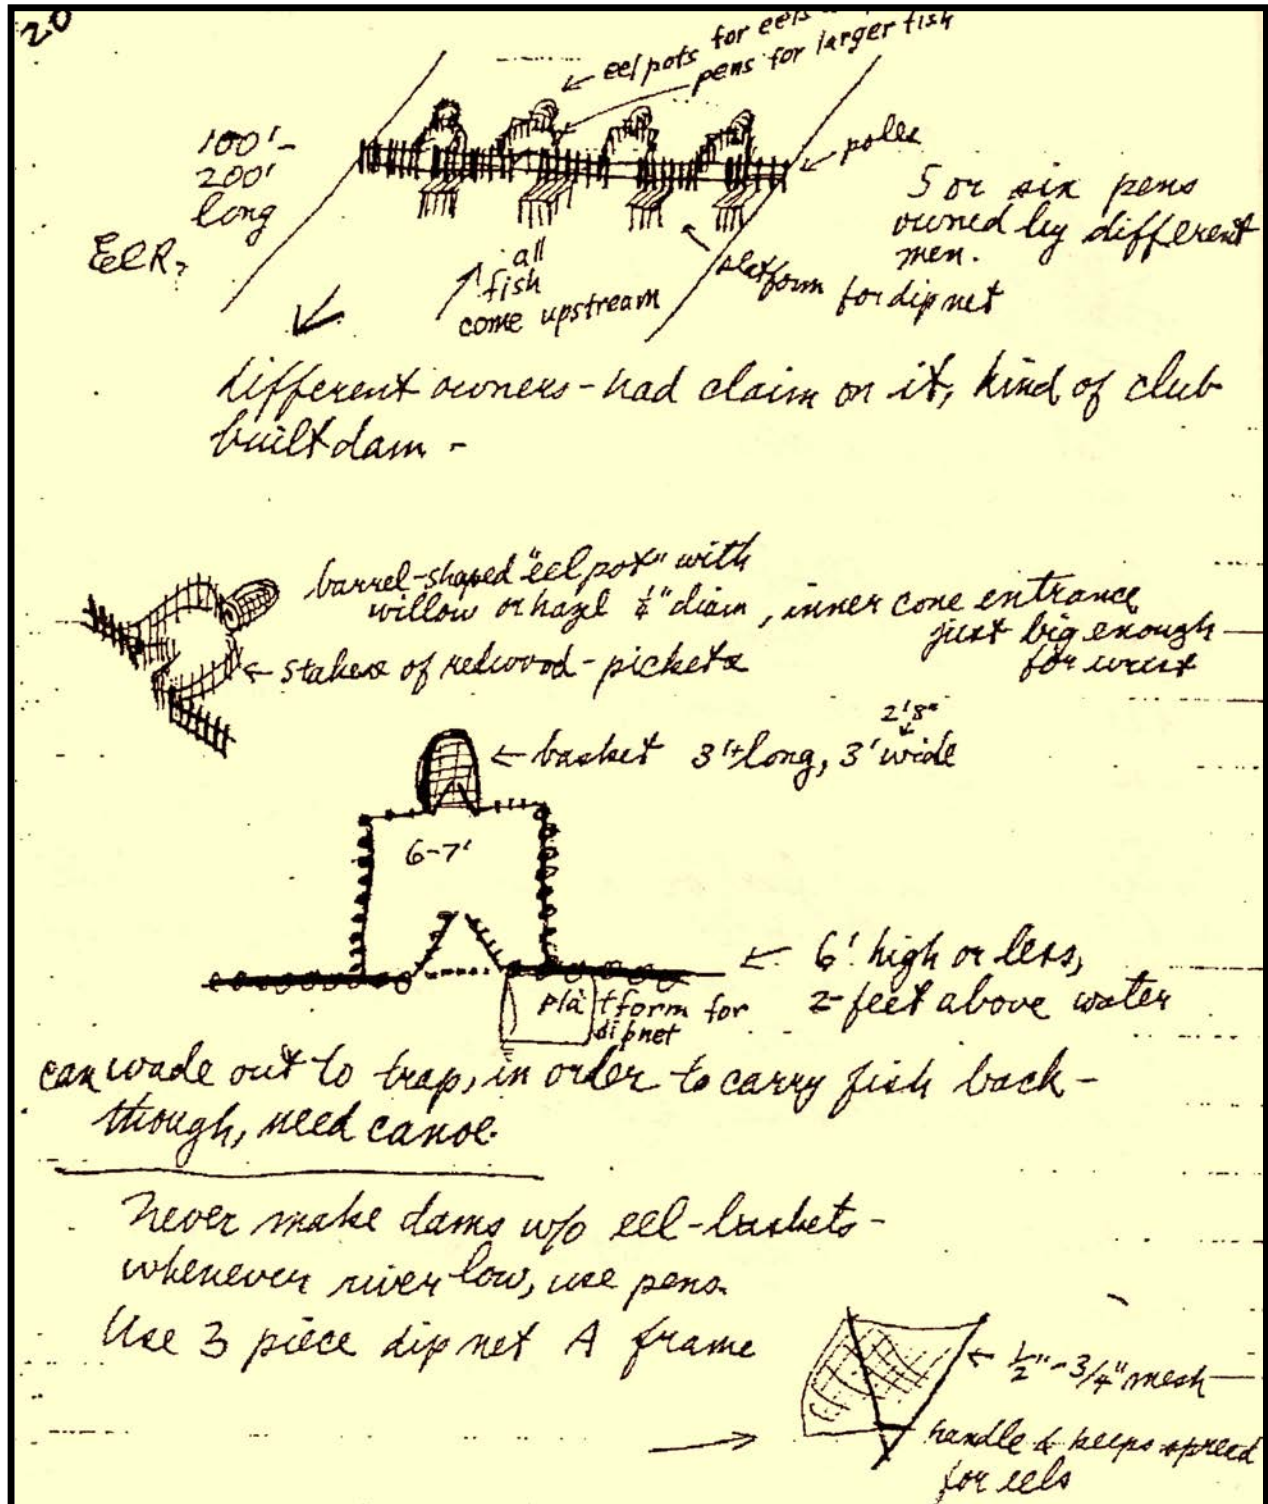 20
eel pots for eels
pens for larger fish
100'-
200'
long
Eel R.
poles
5 or six pens
owned by different
men.
all
fish
come upstream
platform for dip net
different owners - had claim on it, kind of club
built dam -
barrel-shaped "eel pot" with
willow or hazel ¼" diam, inner cone entrance
just big enough
for wrist
stakes of redwood - pickets
2'8"
basket 3'+ long, 3' wide
6-7'
6' high or less,
2 feet above water
platform for
dipnet
can wade out to trap, in order to carry fish back -
though, need canoe.
Never make dams w/o eel-baskets -
whenever river low, use pens.
Use 3 piece dip net A frame
½" - 3/4" mesh
handle & keeps spread
for eels